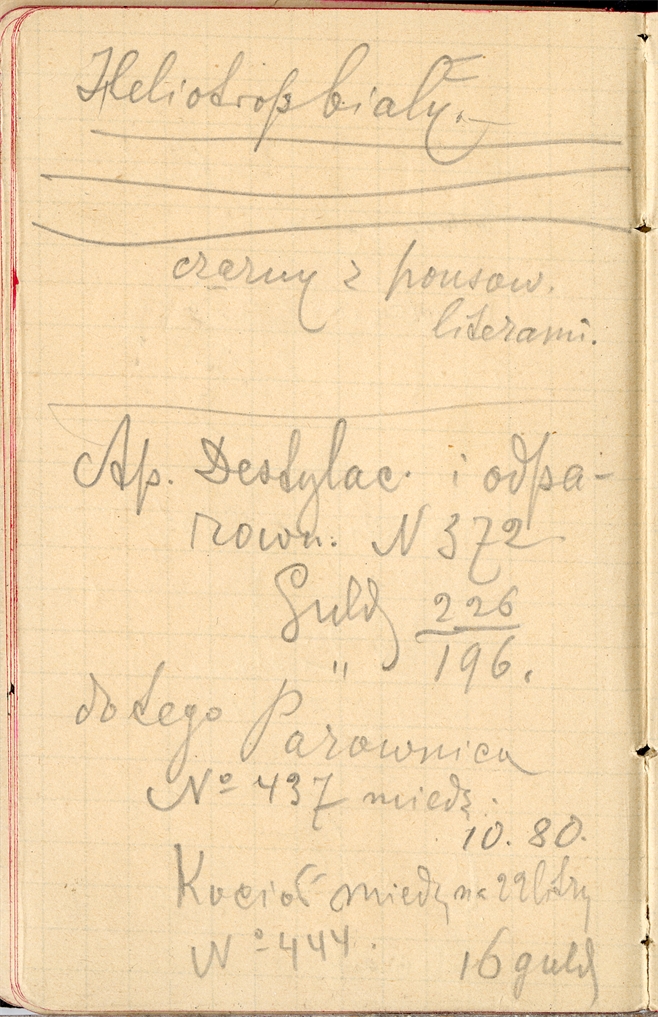 Heliotrop biały.
czarny z ponsow.
literami.
Ap. Destylac. i odpa-
rown. N 372
Guld 226
" 196.
do tego Parownica
Nº 437 miedz.
10.80.
Kocioł miedz. na 22 litry
Nº 444.
16 guld